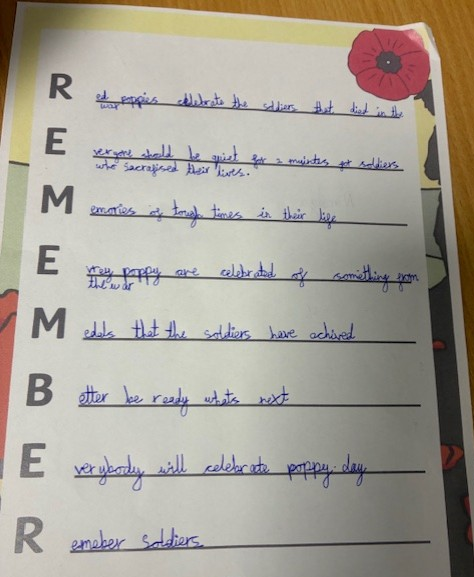 Red poppies celebrate the soldiers that died in the
war
Everyone should be quiet for 2 muintes for soldiers
who sacrafised their lives.
Memories of tough times in their life
Evrey poppy are celebrated of something from
the war
Medals that the soldiers have achived
Better be ready whats next
Everybody will celebrate poppy day
Remeber soldiers